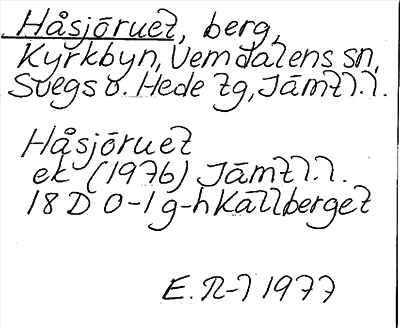 Håsjöruet, berg,
Kyrkbyn, Vemdalens sn,
Svegs o. Hede tg, Jämtl. l.
Håsjöruet
ek (1976) Jämtl. l.
18 D 0-1 g-h Källberget
E. N-l 1977